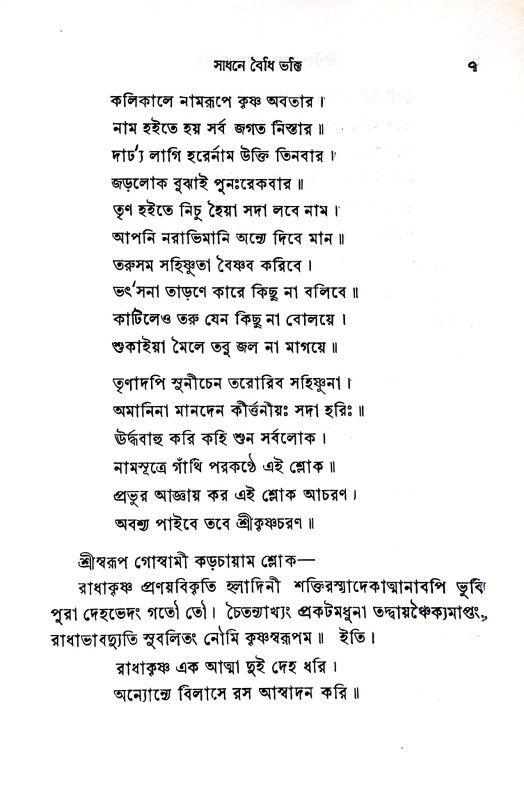 সাধনে বৈধি ভক্তি ৭
কলিকালে নামরূপে কৃষ্ণ অবতার।
নাম হইতে হয় সর্ব জগত নিস্তার॥
দার্ঢ্য লাগি হরের্নাম উক্তি তিনবার।
জড়লোক বুঝাই পুনঃরেকবার॥
তৃণ হইতে নিচু হৈয়া সদা লবে নাম।
আপনি নরাভিমানি অন্যে দিবে মান॥
তরুসম সহিষ্ণুতা বৈষ্ণব করিবে।
ভর্ৎসনা তাড়ণে কারে কিছু না বলিবে॥
কাটিলেও তরু যেন কিছু না বোলয়ে।
শুকাইয়া মৈলে তবু জল না মাগয়ে॥
তৃণাদপি সুনীচেন তরোরিব সহিষ্ণুনা।
অমানিনা মানদেন কীর্ত্তনীয়ঃ সদা হরিঃ॥
ঊর্দ্ধবাহু করি কহি শুন সর্বলোক।
নামসূত্রে গাঁথি পরকণ্ঠে এই শ্লোক॥
প্রভুর আজ্ঞায় কর এই শ্লোক আচরণ।
অবশ্য পাইবে তবে শ্রীকৃষ্ণচরণ॥
শ্রীস্বরূপ গোস্বামী কড়চায়াম শ্লোক—
রাধাকৃষ্ণ প্রণয়বিকৃতি হ্লাদিনী শক্তিরস্মাদেকাত্মানাবপি ভুবি
পুরা দেহভেদং গতৌ তৌ। চৈতন্যাখ্যং প্রকটমধুনা তদ্দ্বায়ঞ্চৈক্যমাপ্তং,
রাধাভাবদ্যুতি সুবলিতং নৌমি কৃষ্ণস্বরূপম॥ ইতি।
রাধাকৃষ্ণ এক আত্মা দুই দেহ ধরি।
অন্যোন্যে বিলাসে রস আস্বাদন করি॥